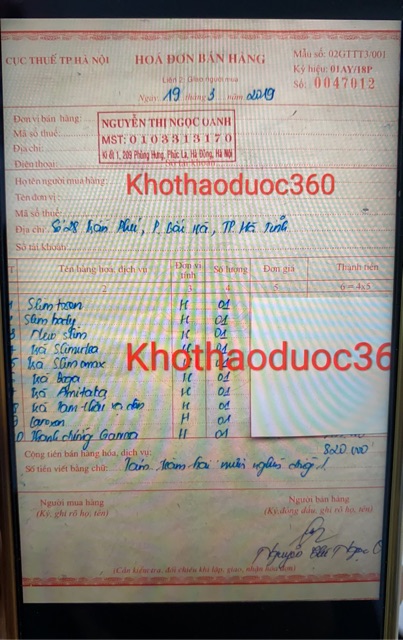 CỤC THUẾ TP.HÀ NỘI
HOÁ ĐƠN BÁN HÀNG
Mẫu số: 02GTTT3/001
Liên 2: Giao người mua
Ký hiệu: 01AY/18P
Số: 0047012
Ngày 19 tháng 3 năm 2019
Đơn vị bán hàng:
NGUYỄN THỊ NGỌC OANH
Mã số thuế:
MST: 0103313170
Địa chỉ:
Ki ốt 1, 209 Phùng Hưng, Phúc La, Hà Đông, Hà Nội
Điện thoại: Số tài khoản:
Họ tên người mua hàng:
Khothaoduoc360
Tên đơn vị:
Mã số thuế:
Địa chỉ: Số 28 Trần Phú, P. Bắc Hà, TP. Hà Tĩnh
Số tài khoản:
Tên hàng hóa, dịch vụ
Đơn vị tính
Số lượng
Đơn giá
Thành tiền
2 3 4 5 6 = 4x5
Slim H 01
Slim body H 01
New Slim H 01
Trà H 01
Khothaoduoc36
Trà Slim max H 01
Trà H 01
Trà H 01
Trà H 01
H 01
H 01
Cộng tiền bán hàng hóa, dịch vụ: 820.000
Số tiền viết bằng chữ: Tám trăm hai mươi nghìn đồng
Người mua hàng
Người bán hàng
(Ký, ghi rõ họ, tên)
(Ký, đóng dấu, ghi rõ họ, tên)
Nguyễn Thị Ngọc O
(Cần kiểm tra, đối chiếu khi lập, giao, nhận hóa đơn)